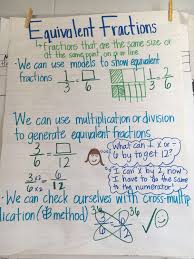 Equivalent Fractions
Fractions that are the same size or
at the same point on a line
• We can use models to show equivalent
fractions 1/3 = □/6 1/3 = 2/6
• We can use multiplication or division
to generate equivalent fractions
3/6 = □/12
What can I x or ÷
6 by to get 12?
3 x2 = 6
6 x2 12
I can x by 2, now
I have to do the same
to the numerator!
• We can check ourselves with cross-multip
lication ( method) 36 36
3 6
6 12